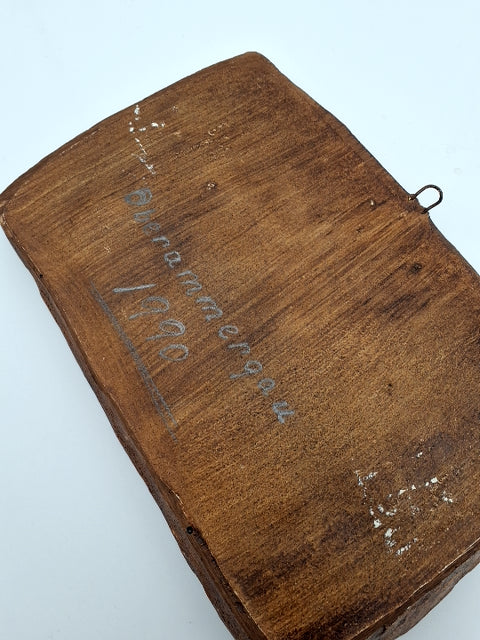 Oberammergau
1990